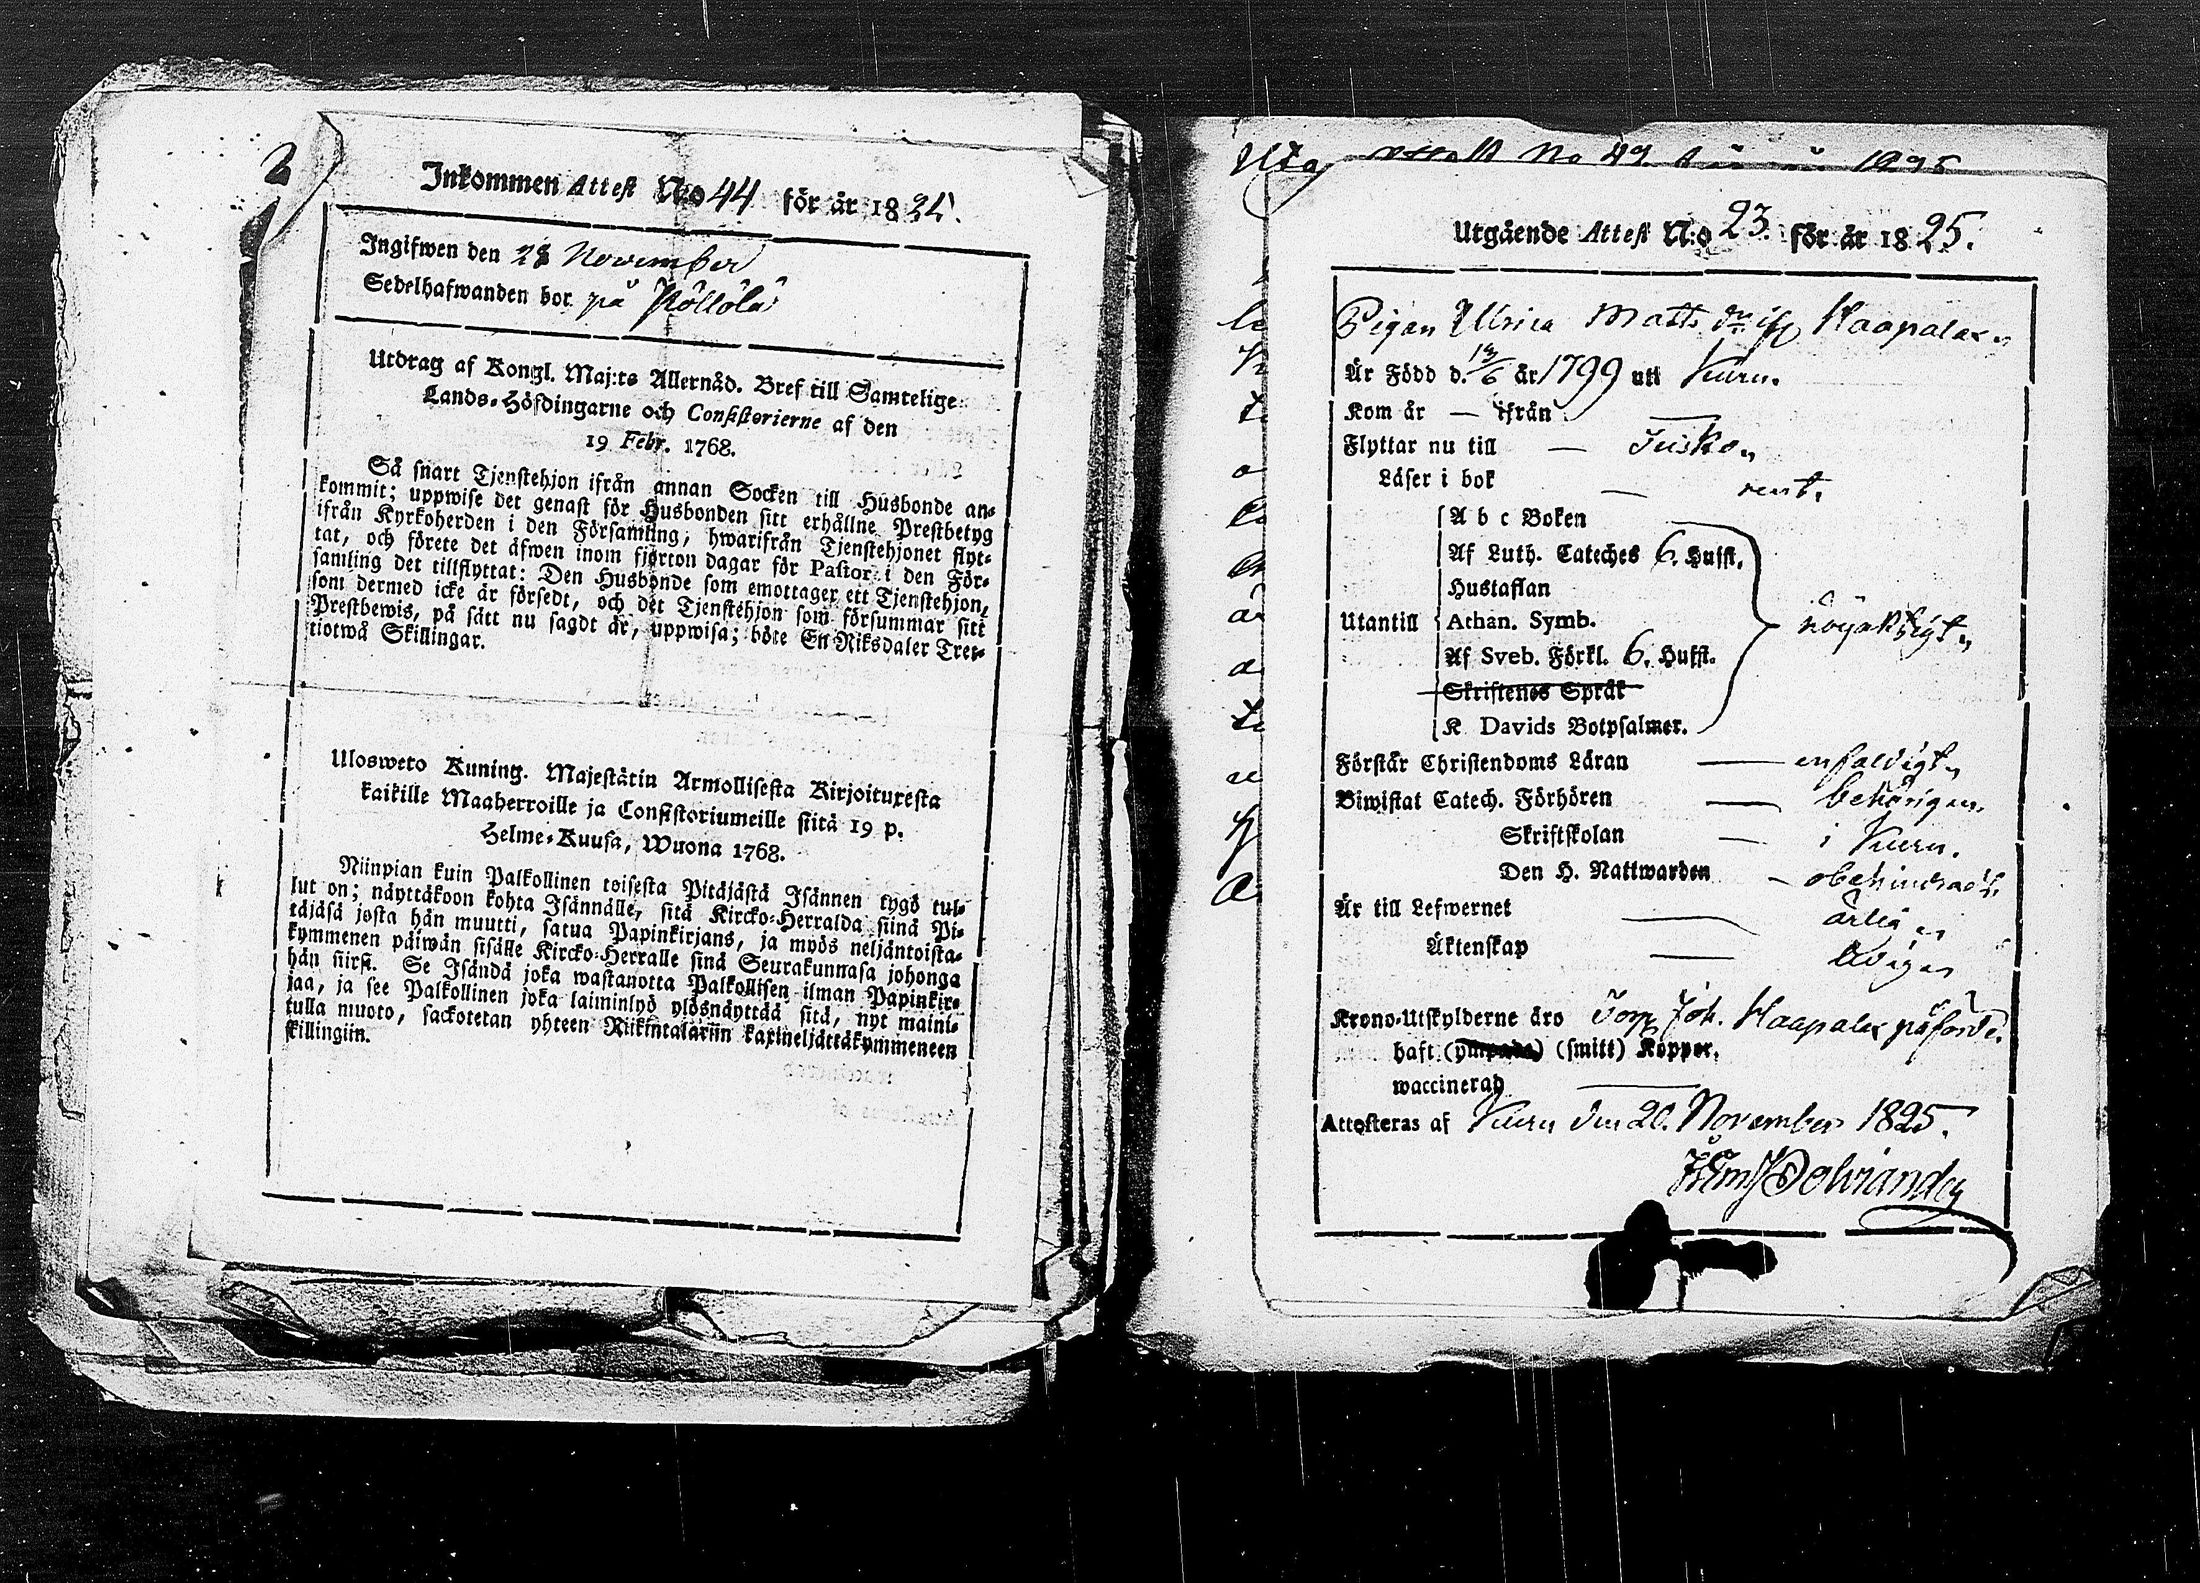 2
Inkommen Attest N:o 44 för år 1825.
Ingifwen den 28 November
Sedelhafwanden bor på Pöllölä
Utdrag af Kongl. Maj:ts Allernåd. Bref till Samtelige
Lands-Höfdingarne och Consistorierne af den
19 Febr. 1768.
Så snart Tjenstehjon ifrån annan Socken till Husbonde an-
kommit; uppwise det genast för Husbonden sitt erhållne Prestbetyg
ifrån Kyrkoherden i den Församling, hwarifrån Tjenstehjonet flyt-
tat, och förete det äfwen inom fjorton dagar för Pastor i den För-
samling det tillflyttat: Den Husbonde som emottager ett Tjenstehjon,
som dermed icke är försedt, och det Tjenstehjon som försummar sitt
Prestbewis, på sätt nu sagdt är, uppwisa; böte En Riksdaler Tret-
tiotwå Skillingar.
Ulosweto Kuning. Majestätin Armollisesta Kirjoituxesta
kaikille Maaherroille ja Consistoriumeille siitä 19 p.
Helme-Kuusa, Wuona 1768.
Niinpian kuin Palkollinen toisesta Pitäjästä Isännen tygö tul-
lut on; näyttäkoon kohta Isännälle, sitä Kircko-Herralda siinä Pi-
täjäsä josta hän muutti, satua Papinkirjans, ja myös neljäntoista-
kymmenen päiwän sisälle Kircko-Herralle sinä Seurakunnasa johonga
hän siirsi. Se Isändä joka wastanotta Palkollisen ilman Papinkir-
jaa, ja see Palkollinen joka laiminlyö ylösnäyttää sitä, nyt maini-
tulla muoto, sackotetan yhteen Riikintalariin kaxineljättäkymmeneen
skillingiin.
Utgående Attest N:o 23. för år 1825.
Pigan Ulrica Matts dr ifr Haapalax
Är Född d. 13/6 år 1799 uti Kuru.
Kom år — ifrån —
Flyttar nu till — Rusko
Läser i bok — rent.
A b c Boken
Af Luth. Cateches 6. Hufst.
Hustaflan
Utantill Athan. Symb. nöjaktigt
Af Sveb. Förkl. 6. Hufst.
Skriftenes Språk
K. Davids Botpsalmer.
Förstår Christendoms Läran — enfaldigt
Biwistat Catech. Förhören — behörigen
Skriftskolan — i Kuru.
Den H. Nattwarden — obehindrad
Är till Lefwernet — ärlig
Äktenskap — ledig
Krono-Utskylderne äro Torp. Joh. Haapalax påförde.
haft (ympade) (smitt) Koppor.
waccinerad —
Attesteras af Kuru den 20. November 1825.